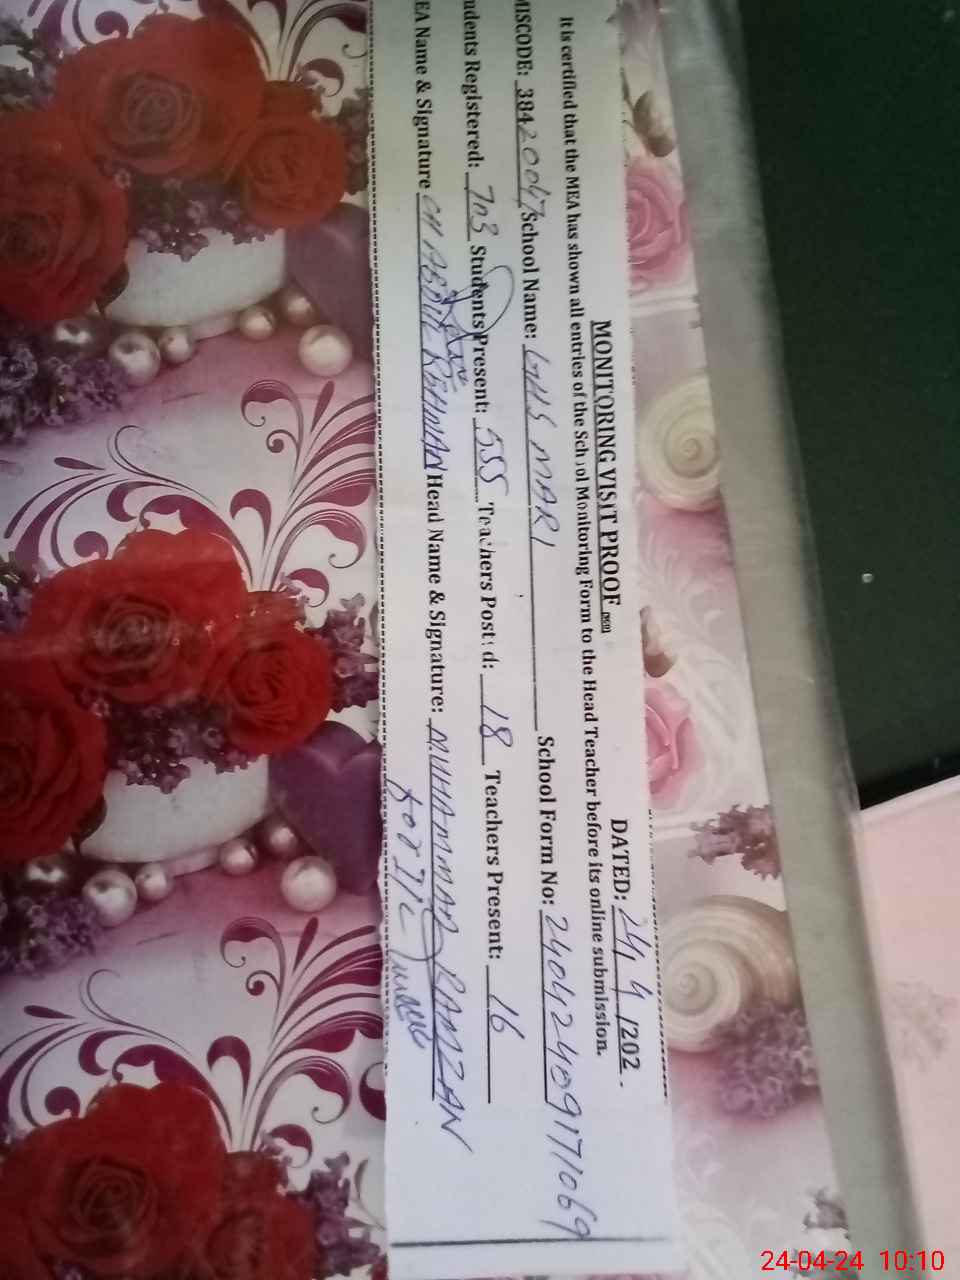 MONITORING VISIT PROOF
DATED: 24/4/202
It is certified that the MEA has shown all entries of the School Monitoring Form to the Head Teacher before its online submission.
MISCODE: 38420047 School Name: GHS MARI School Form No: 2404240917 1069
udents Registered: 703 Students Present: 555 Teachers Posted: 18 Teachers Present: 16
EA Name & Signature CH ABDUL REHMAN Head Name & Signature: MUHAMMAD RAMZAN
24-04-24 10:10